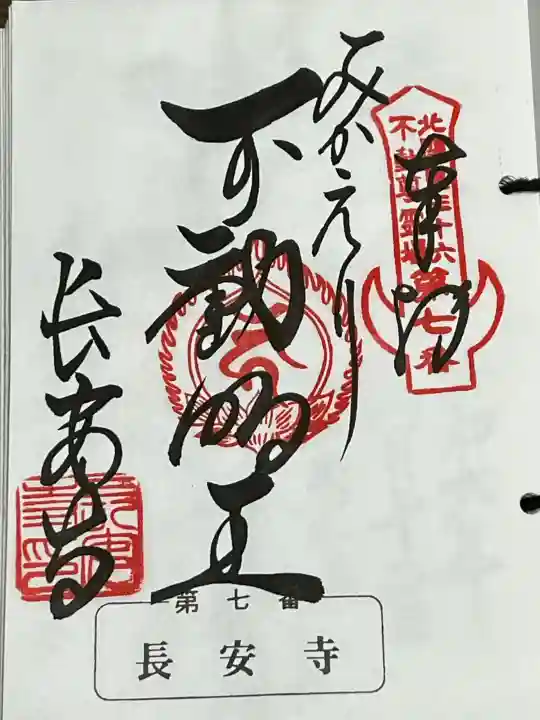 奉拝
北関東三十六
不動尊霊場第七番
みかえり
不動明王
長安寺
第七番
長安寺